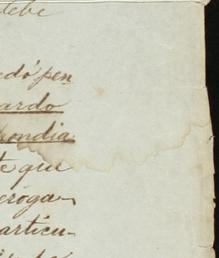 debe
edó pen
ardo
pondia
te que
eroga-
articu-